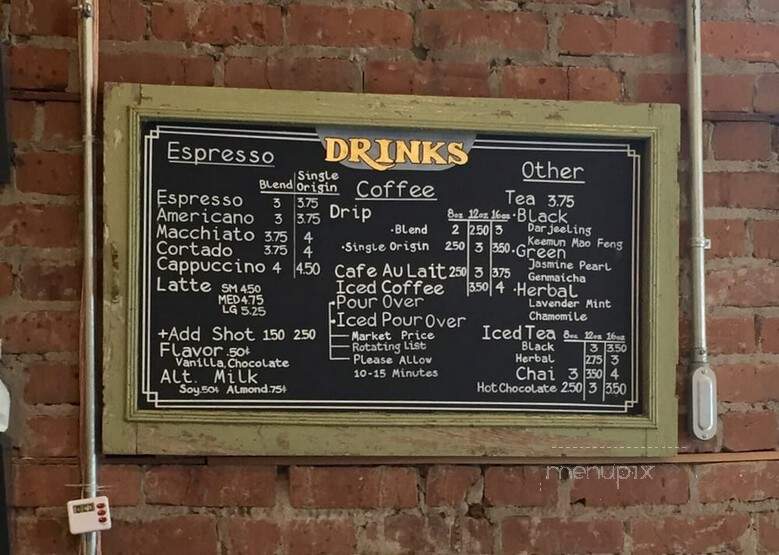 DRINKS
Espresso
Blend Single Origin
Espresso 3 3.75
Americano 3 3.75
Macchiato 3.75 4
Cortado 3.75 4
Cappuccino 4 4.50
Latte SM 4.50
MED 4.75
LG 5.25
+Add Shot 1.50 2.50
Flavor .50¢
Vanilla, Chocolate
Alt. Milk
Soy .50¢ Almond .75¢
Coffee
Drip 8oz 12oz 16oz
·Blend 2 2.50 3
·Single Origin 2.50 3 3.50
Cafe Au Lait 2.50 3 3.75
Iced Coffee 3.50 4
Pour Over
Iced Pour Over
Market Price
Rotating list
Please Allow
10-15 Minutes
Other
Tea 3.75
·Black
Darjeeling
Keemun Mao Feng
·Green
Jasmine Pearl
Genmaicha
·Herbal
Lavender Mint
Chamomile
Iced Tea 8oz 12oz 16oz
Black 3 3.50
Herbal 2.75 3
Chai 3 3.50 4
Hot Chocolate 2.50 3 3.50
menupix